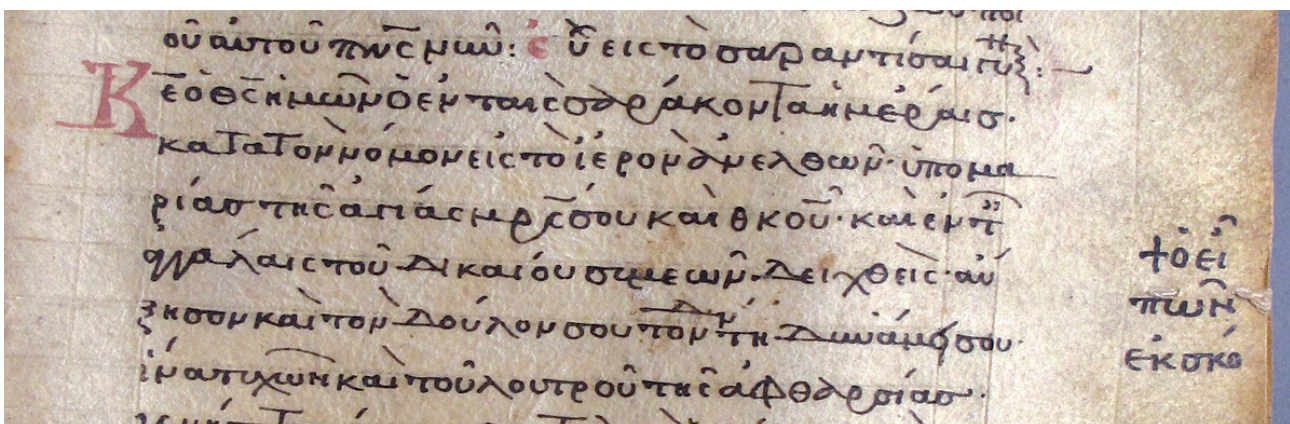 οὐ αὐτοῦ πνς μῶν: ἐ ὐ εἰς τὸ σαραντίσαι
Κε ὁ θς ἡμῶν ὁ ἐν ταῖς σαράκοντα ἡμέραις·
κατα τὸν νόμον εἰς τὸ ἱερὸν ἀνελθών· ὑπο μα
ρίας τῆς ἁγιάς μρς σου καὶ θκου· καὶ ἐν
ἀγγάλαις τοῦ δικαίου σιμεων δειχθεὶς· αὐ
ξησον καὶ τὸν δούλον σου τὸν τῆ δυνάμει σου·
ἵνα τυχὼν καὶ τοῦ λουτροῦ τῆς ἀφθαρσίας·
+ ὁ εἰ
πὼν
ἐκ σκό